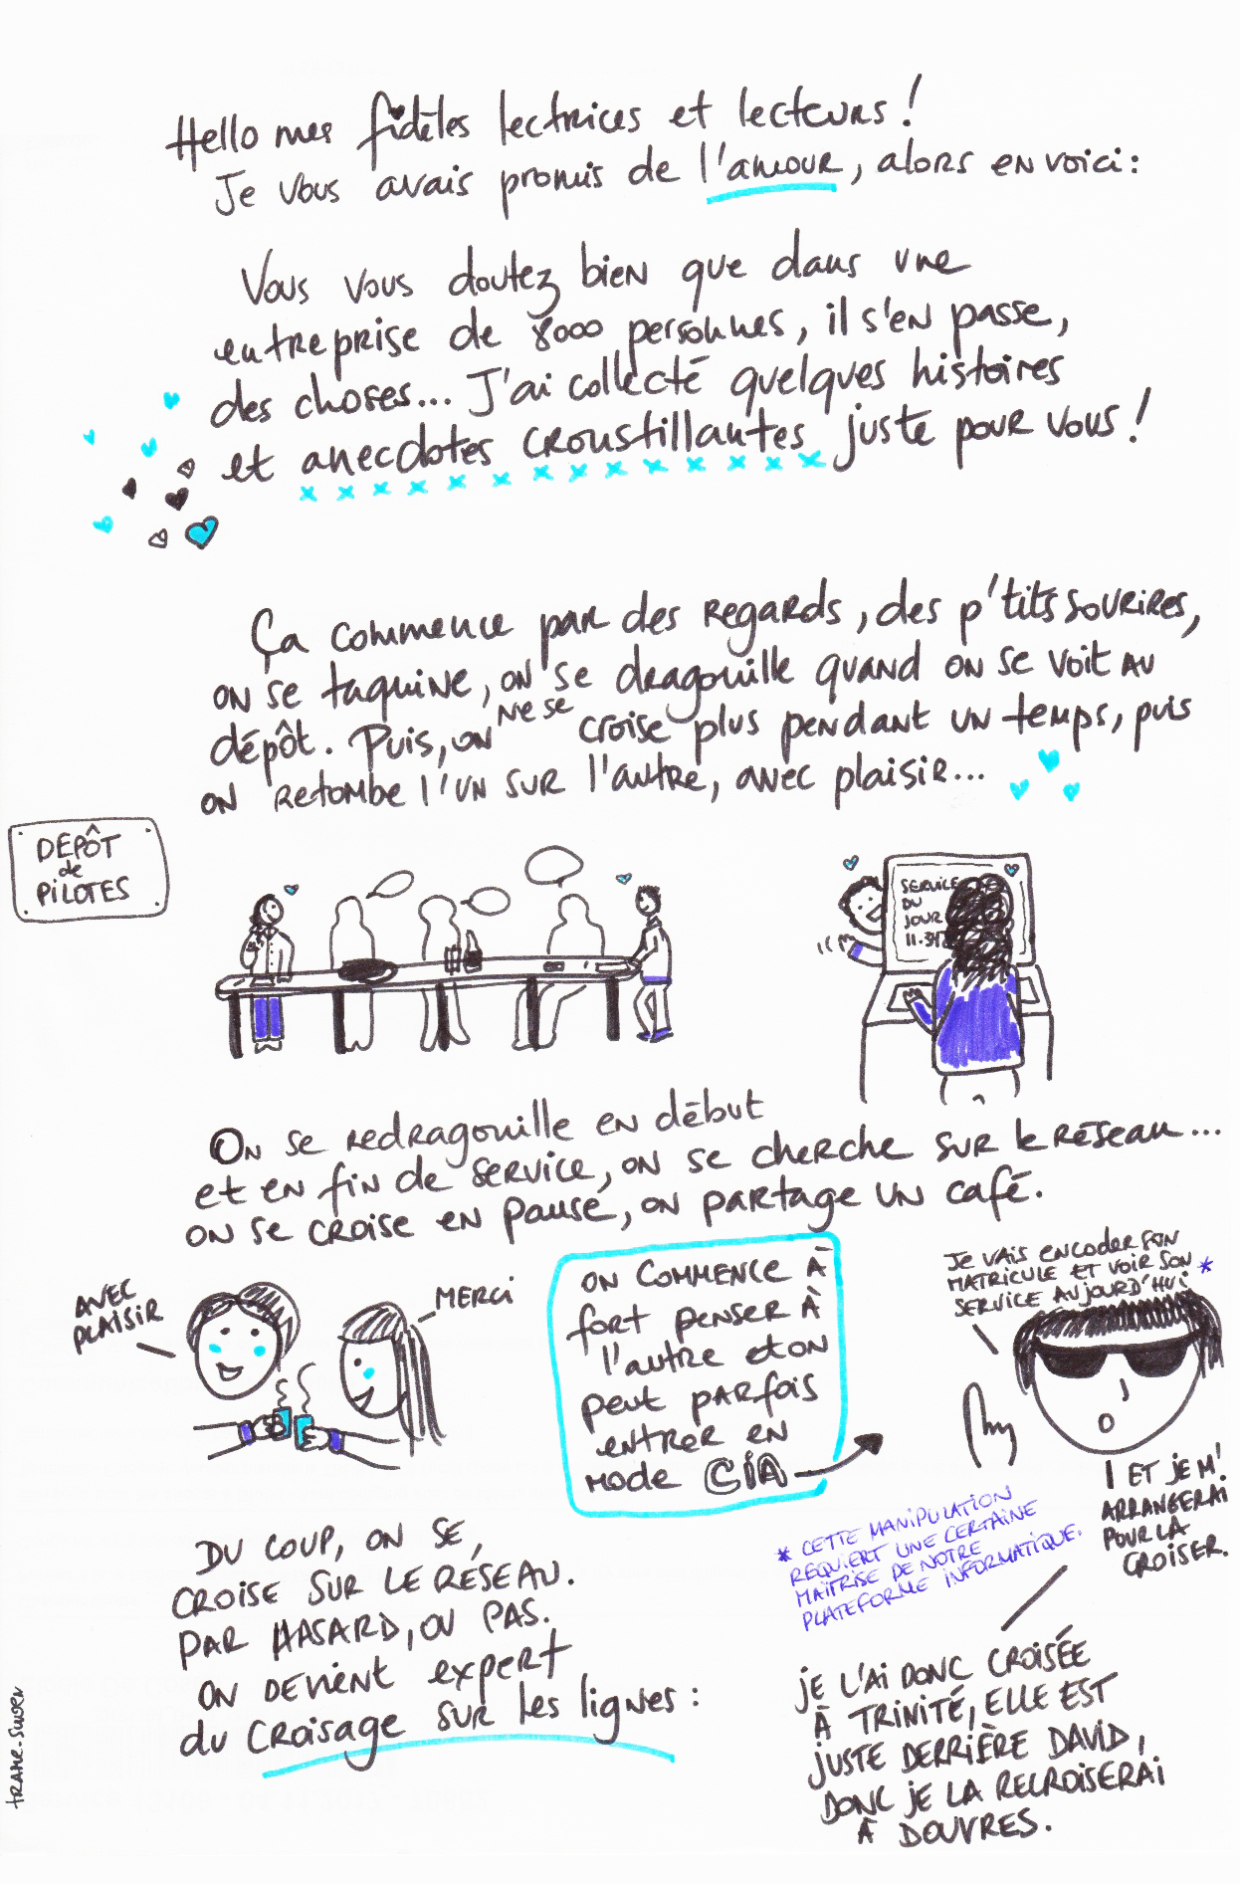 Hello mes fidèles lectrices et lecteurs !
Je vous avais promis de l'amour, alors en voici :
Vous vous doutez bien que dans une
entreprise de 8000 personnes, il s'en passe,
des choses... J'ai collecté quelques histoires
et anecdotes croustillantes juste pour vous !
Ça commence par des regards, des p'tits sourires,
on se taquine, on se dragouille quand on se voit au
dépôt. Puis, on ne se croise plus pendant un temps, puis
on retombe l'un sur l'autre, avec plaisir...
DÉPÔT
de
PILOTES
SERVICE
DU
JOUR
On se redragouille en début
et en fin de service, on se cherche sur le réseau...
on se croise en pause, on partage un café.
AVEC
PLAISIR
MERCI
ON COMMENCE À
fort penser à
l'autre et on
peut parfois
entrer en
mode CIA
Je vais encoder son
matricule et voir son *
service aujourd'hui
ET JE M'
ARRANGERAI
POUR LA
CROISER.
* CETTE MANIPULATION
REQUIERT UNE CERTAINE
MAÎTRISE DE NOTRE
PLATEFORME INFORMATIQUE.
DU COUP, ON SE
CROISE SUR LE RÉSEAU.
PAR HASARD, OU PAS.
ON DEVIENT expert
du croisage sur les lignes :
JE L'AI DONC CROISÉE
À TRINITÉ, ELLE EST
JUSTE DERRIÈRE DAVID,
DONC JE LA RECROISERAI
À DOUVRES.